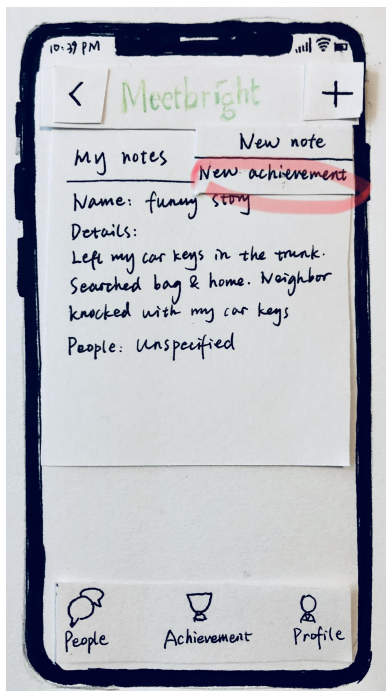 10:39 PM
< Meetbright +
My notes
New note
New achievement
Name: funny story
Details:
Left my car keys in the trunk.
Searched bag & home. Neighbor
knocked with my car keys
People: Unspecified
People Achievement Profile